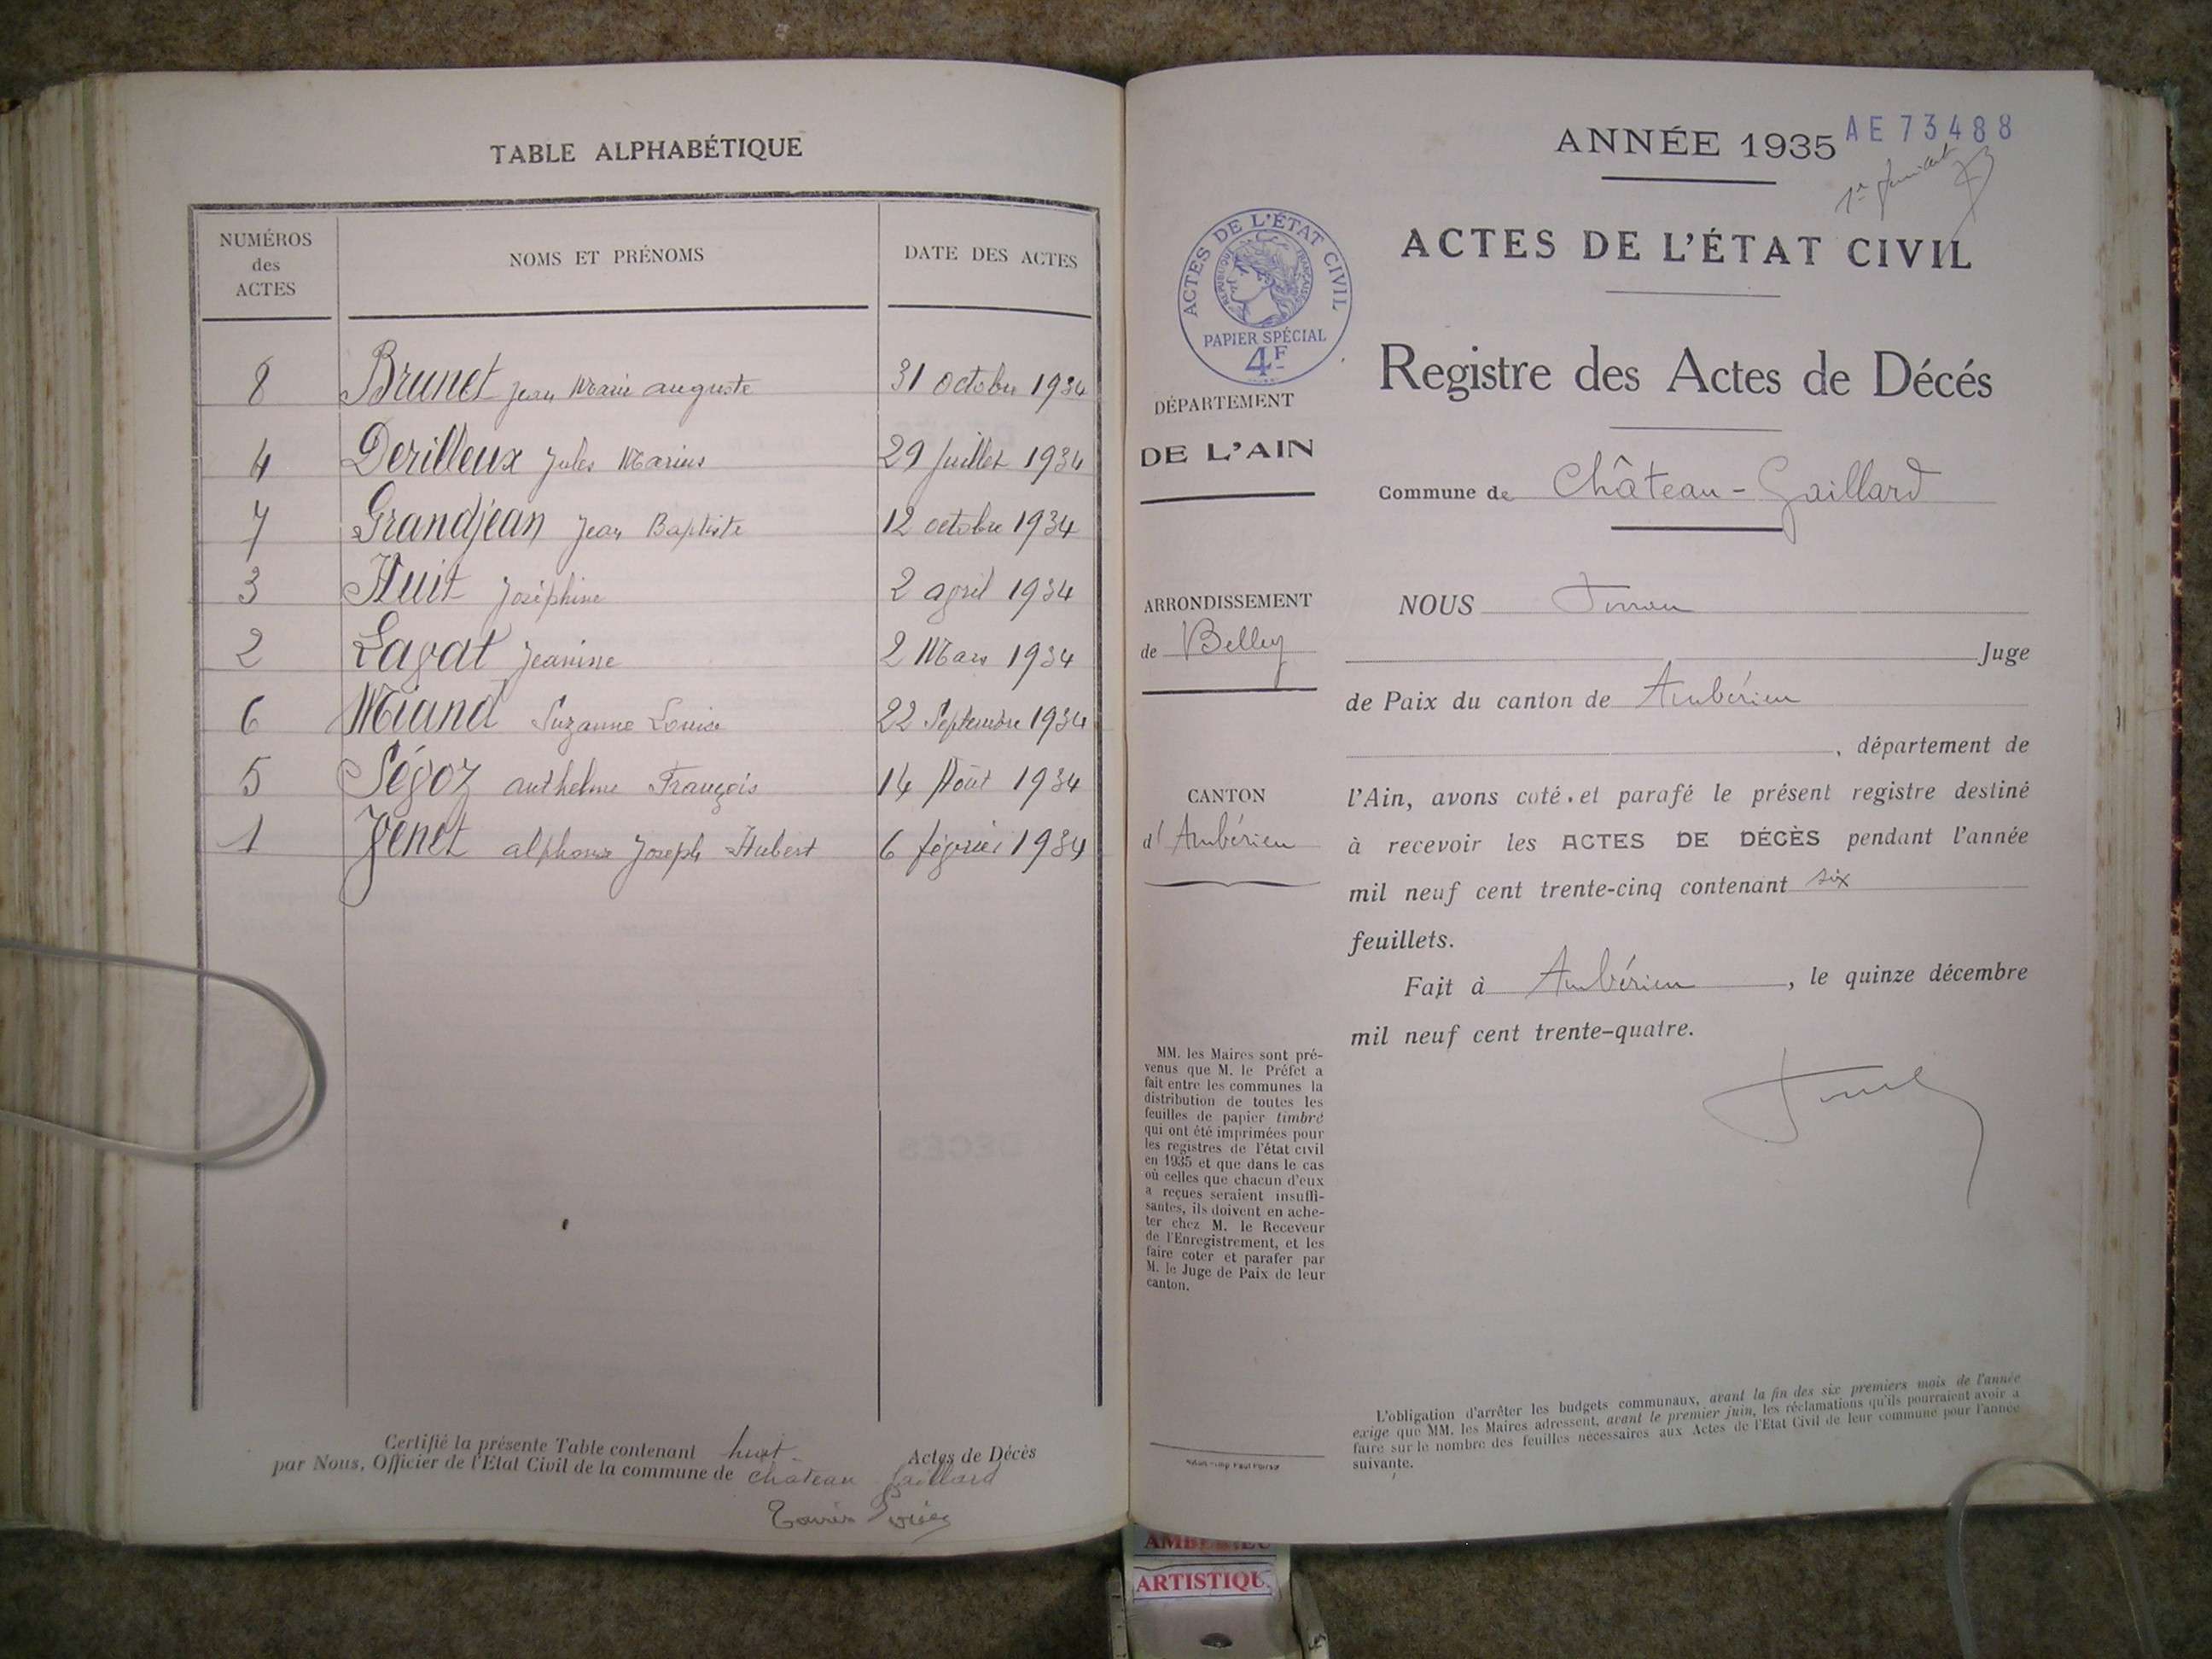 TABLE ALPHABÉTIQUE
NUMÉROS
des
ACTES
NOMS ET PRÉNOMS
DATE DES ACTES
8 Brunet Jean Marie auguste 31 octobre 1934
4 Derilleux Jules Marius 29 Juillet 1934
7 Grandjean Jean Baptiste 12 octobre 1934
3 Huit Joséphine 2 avril 1934
2 Lavat Jeanine 2 Mars 1934
6 Miand Suzanne Louise 22 Septembre 1934
5 Ségoz anthelme François 14 Août 1934
1 alphonse Joseph Hubert 6 février 1934
Certifié la présente Table contenant huit Actes de Décès
par Nous, Officier de l'Etat Civil de la commune de Chateau Gaillard
ANNÉE 1935
AE 73488
ACTES DE L'ÉTAT CIVIL
RÉPUBLIQUE FRANÇAISE
PAPIER SPÉCIAL
4F
ACTES DE L'ÉTAT CIVIL
Registre des Actes de Décés
DÉPARTEMENT
DE L'AIN
Commune de Château-Gaillard
ARRONDISSEMENT
de Belley
CANTON
d'Ambérieu
NOUS
Juge
de Paix du canton de Ambérieu
, département de
l'Ain, avons coté et parafé le présent registre destiné
à recevoir les ACTES DE DÉCÈS pendant l'année
mil neuf cent trente-cinq contenant six
feuillets.
Fait à Ambérieu, le quinze décembre
mil neuf cent trente-quatre.
MM. les Maires sont pré-
venus que M. le Préfet a
fait entre les communes la
distribution de toutes les
feuilles de papier timbré
qui ont été imprimées pour
les registres de l'état civil
en 1935 et que dans le cas
où celles que chacun d'eux
a reçues seraient insuffi-
santes, ils doivent en ache-
ter chez M. le Receveur
de l'Enregistrement, et les
faire coter et parafer par
M. le Juge de Paix de leur
canton.
L'obligation d'arrêter les budgets communaux, avant la fin des six premiers mois de l'année
exige que MM. les Maires adressent, avant le premier juin, les réclamations qu'ils pourraient avoir a
faire sur le nombre des feuilles nécessaires aux Actes de l'Etat Civil de leur commune pour l'année
suivante.
AMBERIEU
ARTISTIQU